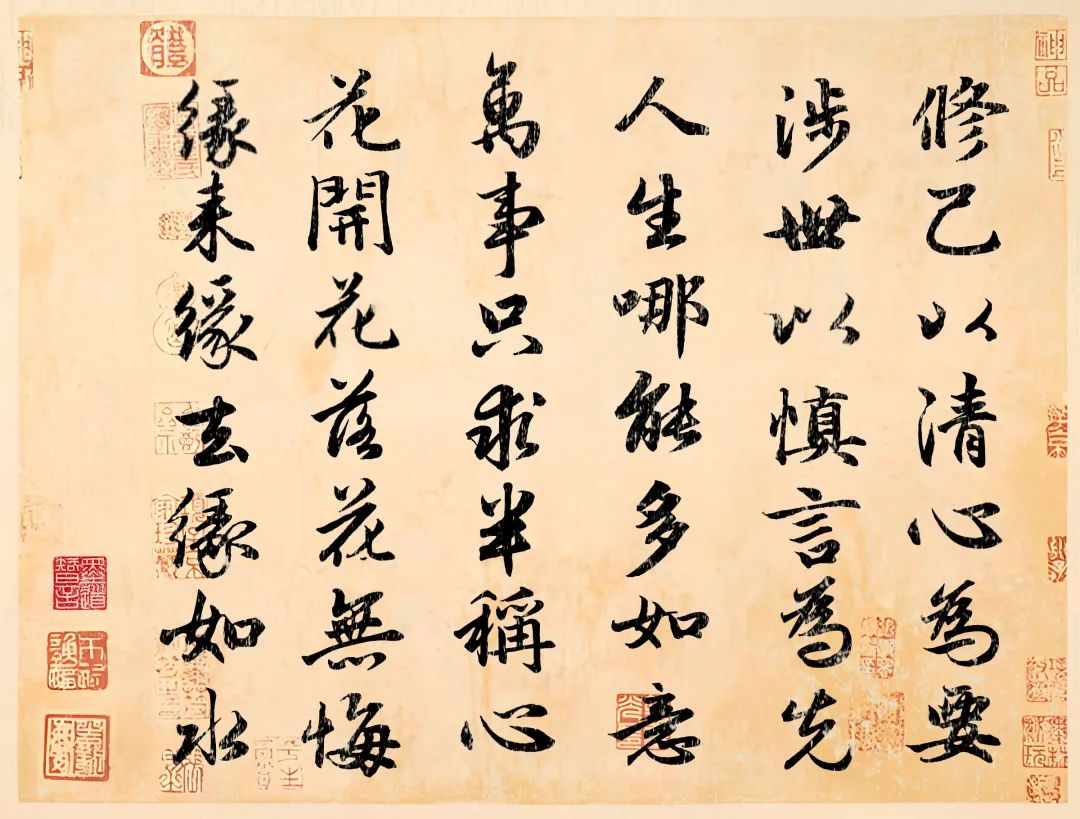 修己以清心為要
涉世以慎言為先
人生哪能多如意
萬事只求半稱心
花開花落花無悔
緣来緣去緣如水